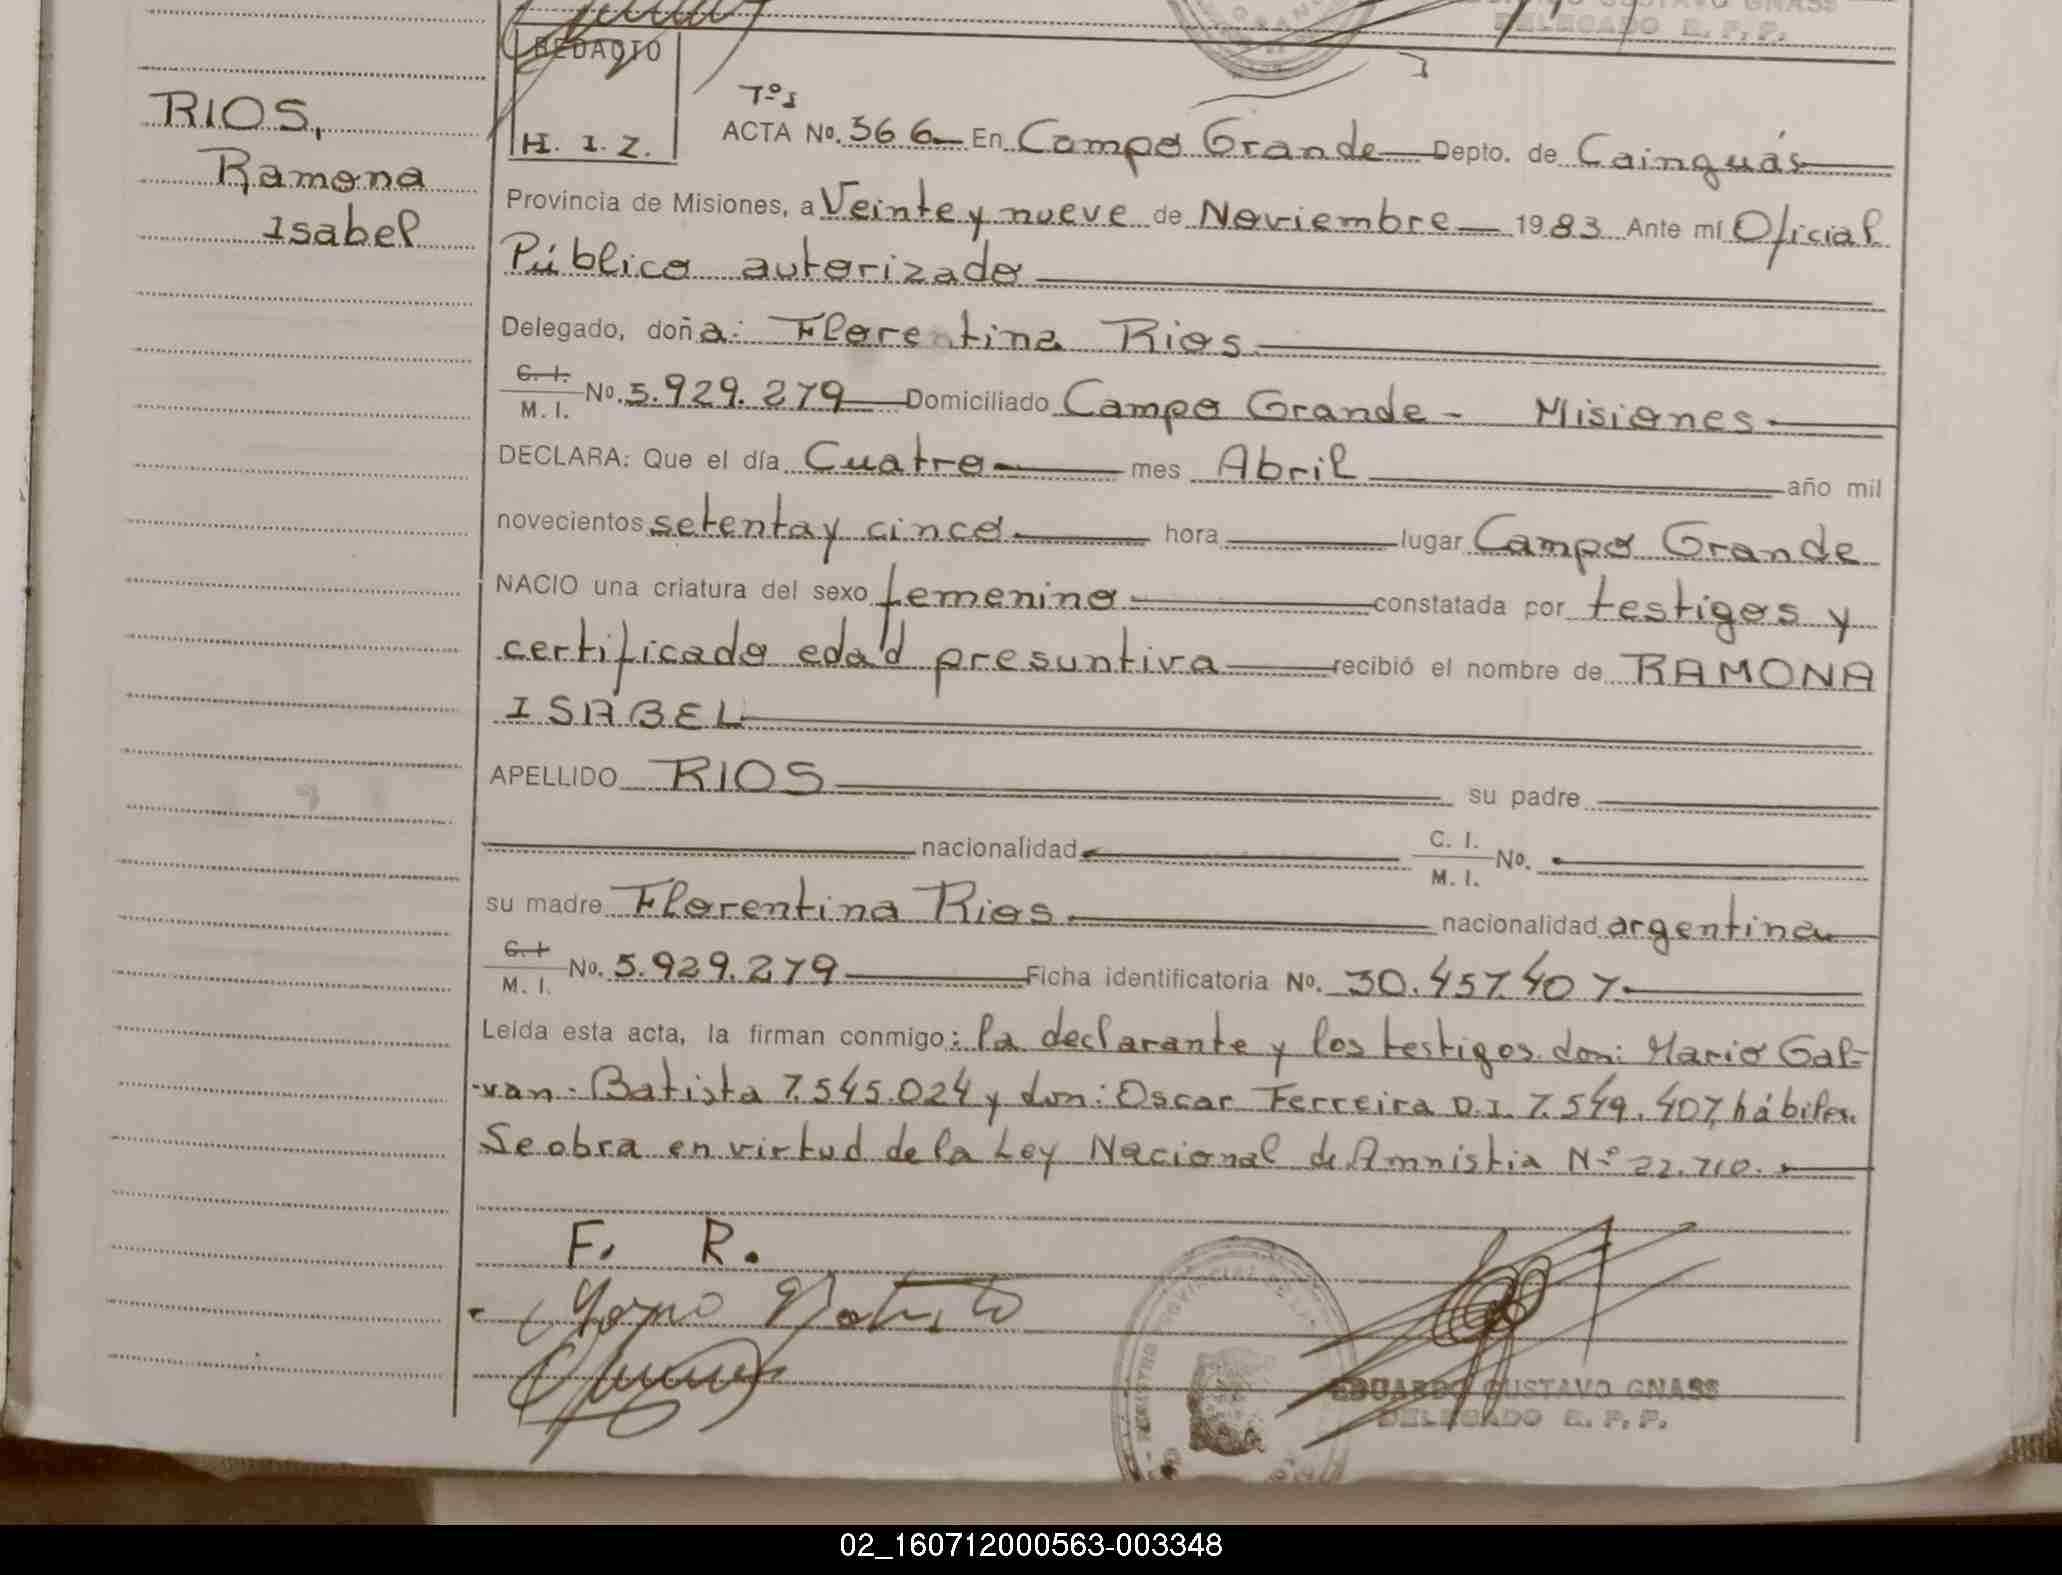 DELEGADO E. P. P.
REDACTO
H. I. Z.
RIOS,
Ramona
Isabel
Tº1
ACTA Nº. 366 En Campo Grande Depto. de Cainguás
Provincia de Misiones, a Veinte y nueve de Noviembre 1983 Ante mí Oficial
Público autorizado
Delegado, doña: Florentina Rios
C. I.
M. I. Nº. 5.929.279 Domiciliado Campo Grande - Misiones
DECLARA: Que el día Cuatro mes Abril año mil
novecientos setenta y cinco hora lugar Campo Grande
NACIO una criatura del sexo femenino constatada por testigos y
certificado edad presuntiva recibió el nombre de RAMONA
ISABEL
APELLIDO RIOS su padre
nacionalidad C. I.
M. I. Nº.
su madre Florentina Rios nacionalidad argentina
C. I
M. I. Nº. 5.929.279 Ficha identificatoria Nº. 30.457.407
Leida esta acta, la firman conmigo: la declarante y los testigos don: Mario Gal-
van Batista 7.545.024 y don: Oscar Ferreira D.I. 7.549.407, hábiles.
Se obra en virtud de la Ley Nacional de Amnistia Nº 22.710.
F. R.
EDUARDO GUSTAVO GNASS
DELEGADO E. P. P.
02_160712000563-003348